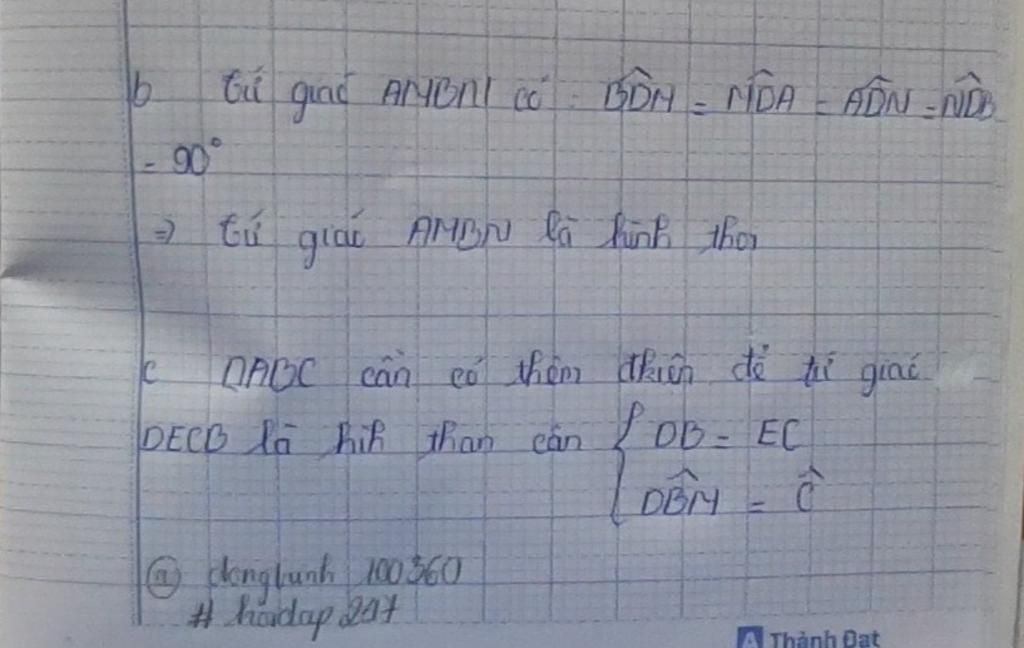 b tứ giác AMBN có : BD̂M = MD̂A = AD̂N = ND̂B
= 90°
=> tứ giác AMBN là hình thoi
c ΔABC cần có thêm đkiện để tứ giác
DECB là hìh than cân { DB = EC
DB̂M = Ĉ
@ 100360
# hoidap247
Thành Đạt